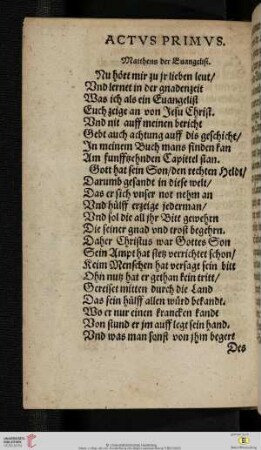 ACTVS PRIMVS.
Mattheus der Euangelist.
Nu hört mir zu jr lieben leut/
Vnd lernet in der gnadenzeit
Was ich als ein Euangelist
Euch zeige an von Jesu Christ.
Vnd mit auff meinen bericht
Gebt auch achtung auff dis geschicht/
In meinem Buch mans finden kan
Am funffzehnden Capittel stan.
Gott hat sein Son/den rechten Heldt/
Darumb gesandt in diese welt/
Das er sich vnser not nehm an
Vnd hülff erzeige jederman/
Vnd sol die all jhr Bitt gewehrn
Die seiner gnad vnd trost begehrn.
Daher Christus war Gottes Son
Sein Ampt hat stetz verrichtet schon/
Keim Menschen hat versagt sein bitt
Ohn nutz hat er gethan kein tritt/
Gereiset mitten durch die Land
Das sein hülff allen würd bekandt.
Wo er nur einen krancken fandt
Von stund er jm auff legt sein hand.
Vnd was man sonst von jhm begert
Des
UNIVERSITÄTS-
BIBLIOTHEK
HEIDELBERG